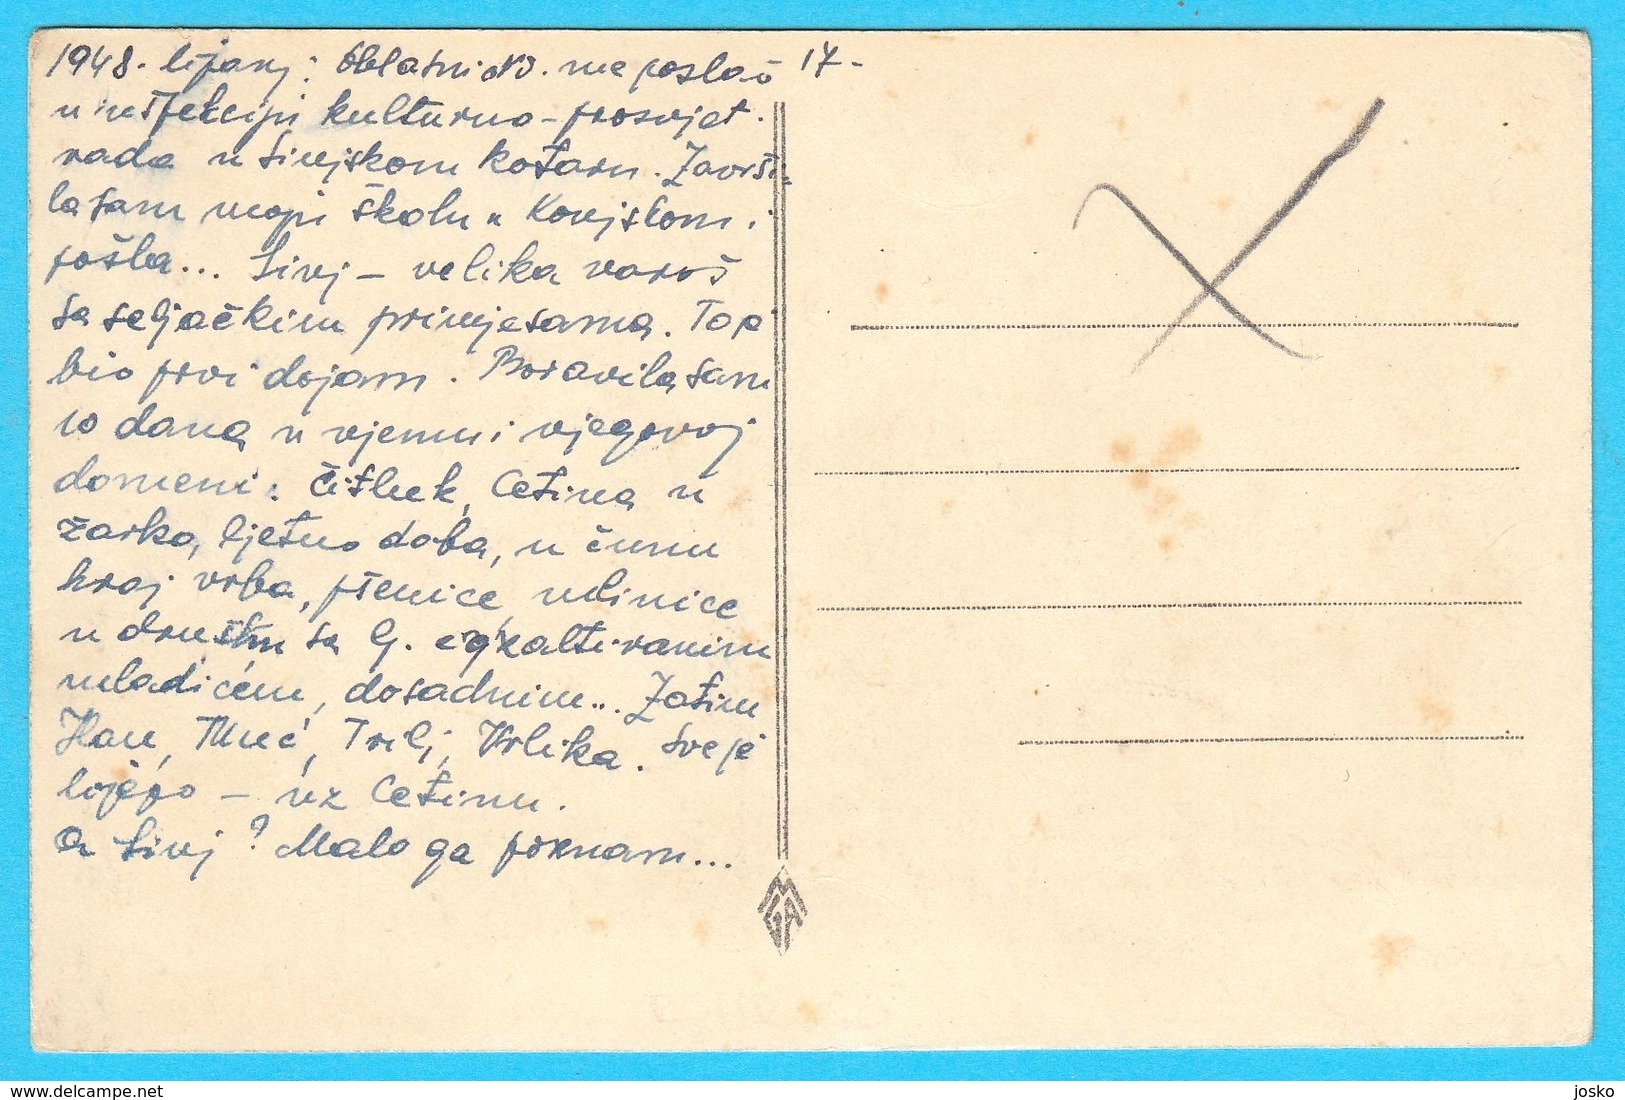 1948. lipanj: Oblasni NO. me poslao 17.
u inspekciji kulturno-prosvjet.
rada u Sinjskom kotaru. Završi-
la sam moju školu u Konjskom i
pošla... Sinj – velika varoš
sa seljačkim primjesama. To je
bio prvi dojam. Boravila sam
10 dana u njemu i njegovoj
domeni. Čitluk, Cetina u
žarko, ljetno doba, u čunu
kraj vrba, pšenice
u društvu sa G. egzaltiranim
mladićem, dosadnim... Zatim
Han, Muć, Trilj, Vrlika. Sve je
lijepo – uz Cetinu.
A Sinj? Malo ga poznam...
josko